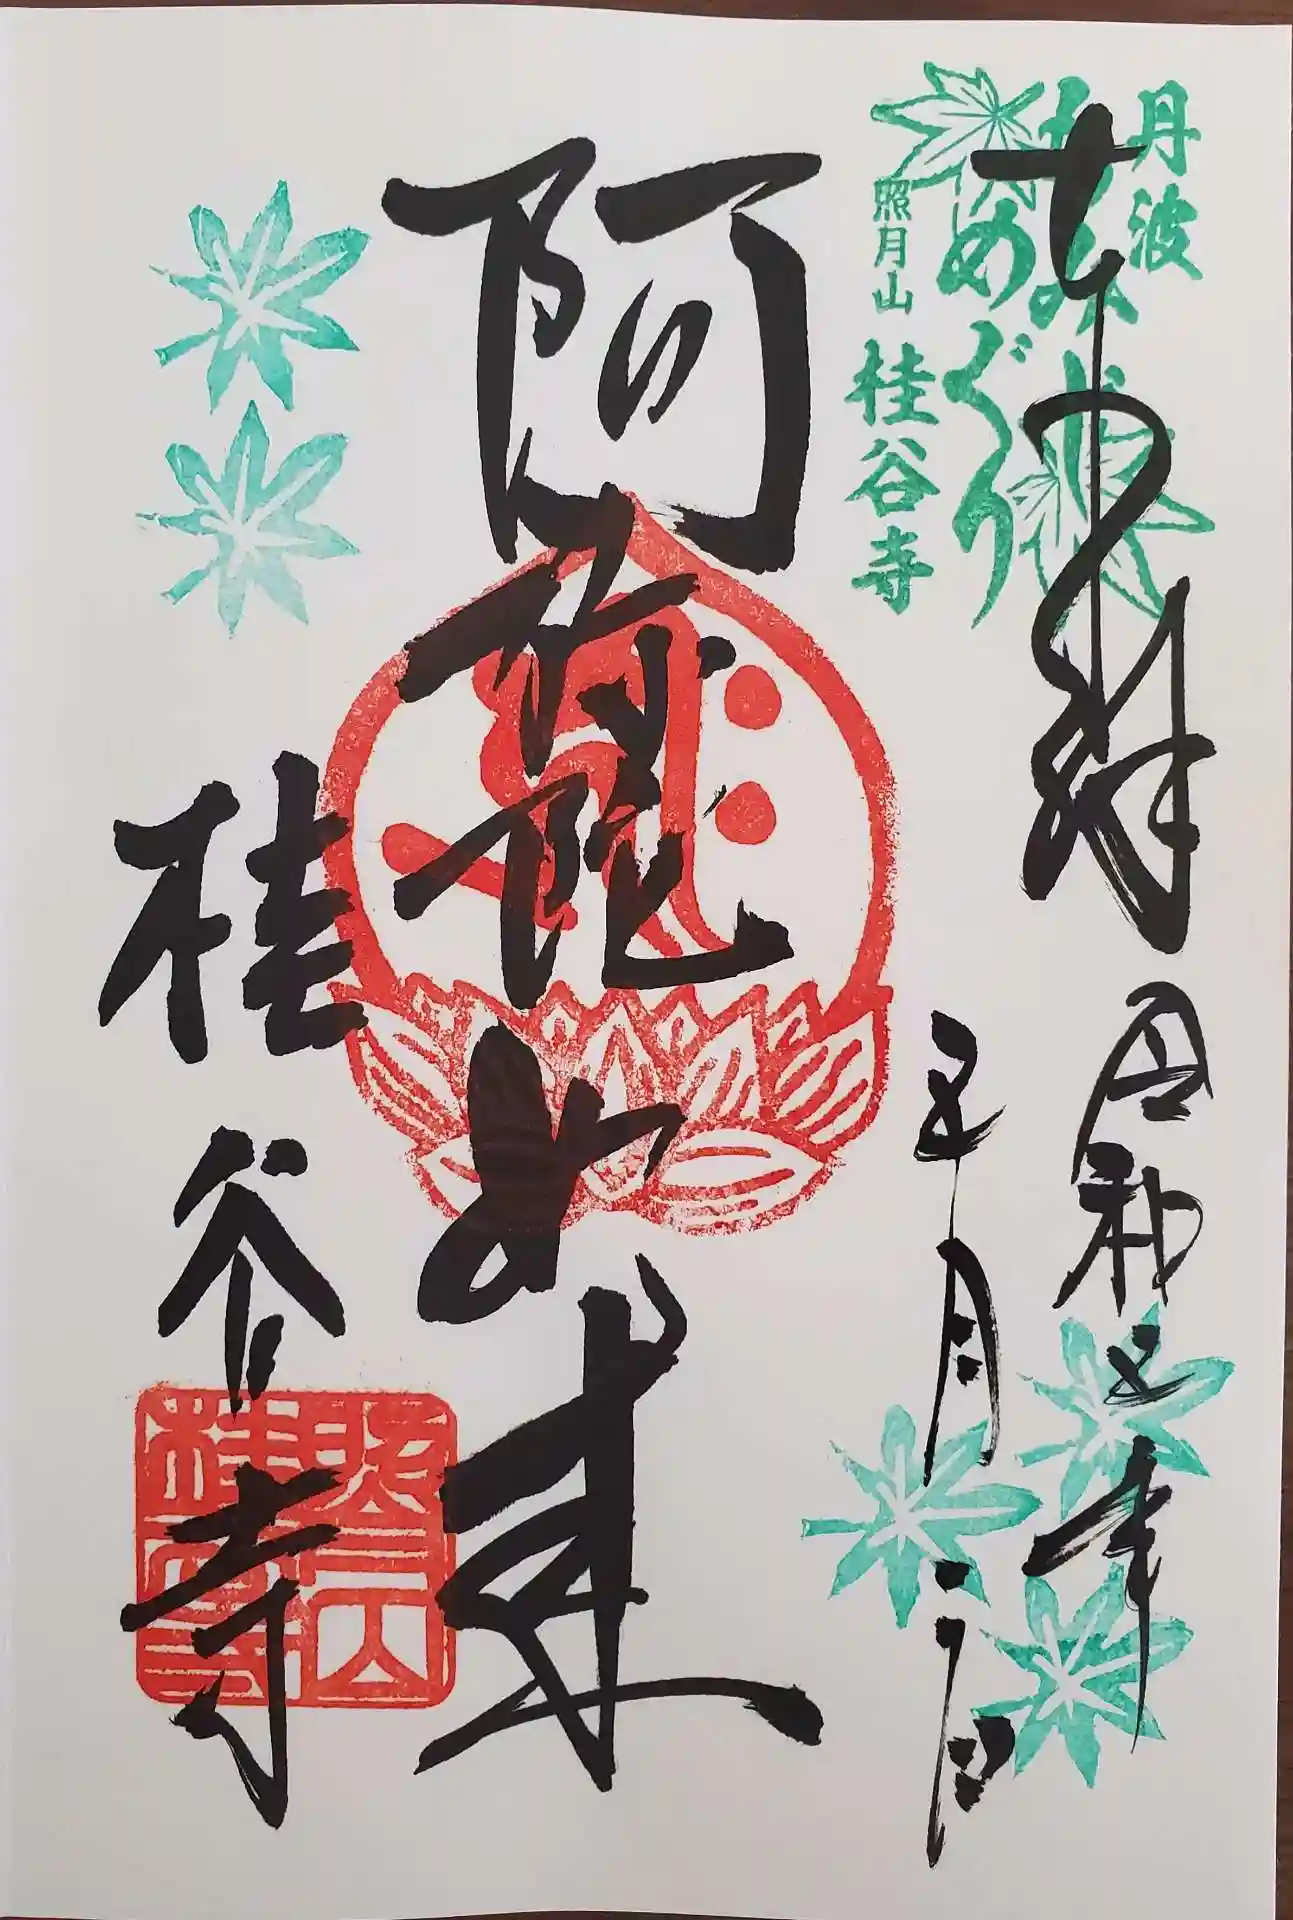 丹波
もみじ
めぐり
照月山 桂谷寺
奉拝 令和五年
五月二日
阿弥陀如来
桂谷寺
照月山
桂谷寺